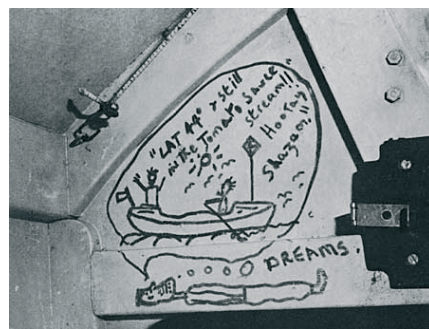 "LAT 44° & still
in the Tomato Sauce
stream!!
Hooray
Shazam!!"
DREAMS.